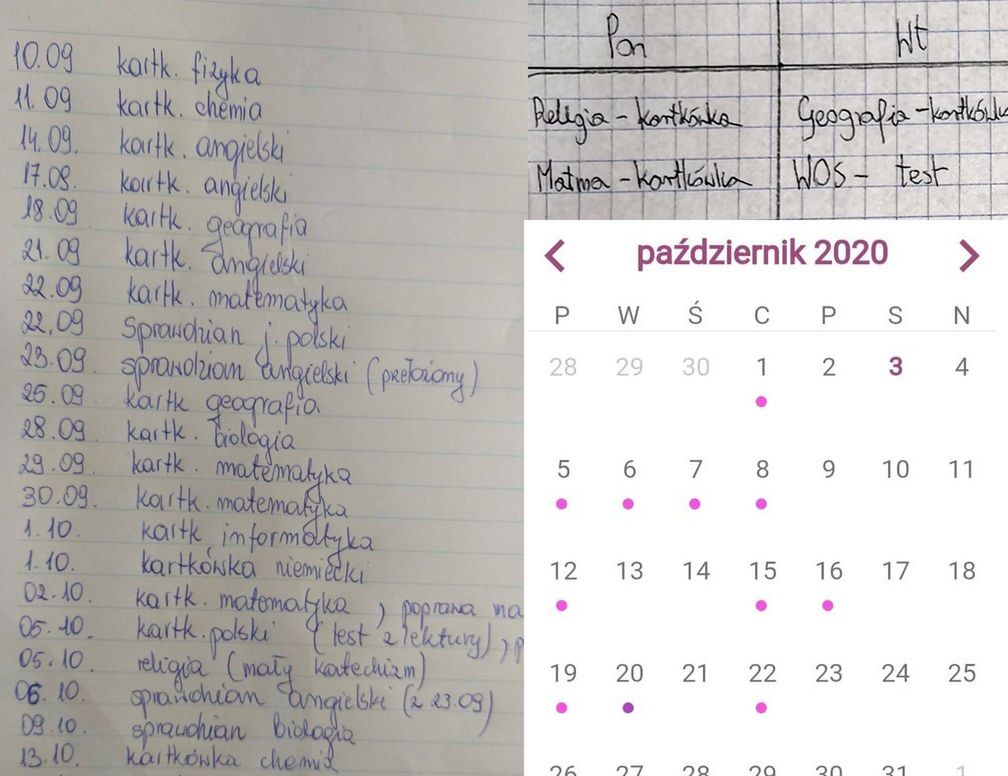 10.09 kartk. fizyka
11.09 kartk. chemia
14.09. kartk. angielski
17.09. kartk. angielski
18.09 kartk. geografia
21.09 kartk. angielski
22.09 kartk. matematyka
22.09 Sprawdzian j. polski
23.09 sprawdzian angielski (przełożony)
25.09 kartk geografia
28.09. kartk. biologia
29.09. kartk. matematyka
30.09. kartk. matematyka
1.10. kartk informatyka
1.10. kartkówka niemiecki
02.10. kartk. matematyka, poprawa ma
05.10. kartk. polski (test z lektury), p
05.10. religia (mały katechizm)
06.10. sprawdzian angielski (z 23.09)
09.10. sprawdzian biologia
13.10. kartkówka chemia
Pon Wt
Religia - kartkówka Geografia - kartkówka
Matma - kartkówka WOS - test
październik 2020
P W Ś C P S N
28 29 30 1 2 3 4
5 6 7 8 9 10 11
12 13 14 15 16 17 18
19 20 21 22 23 24 25
26 27 28 29 30 31 1